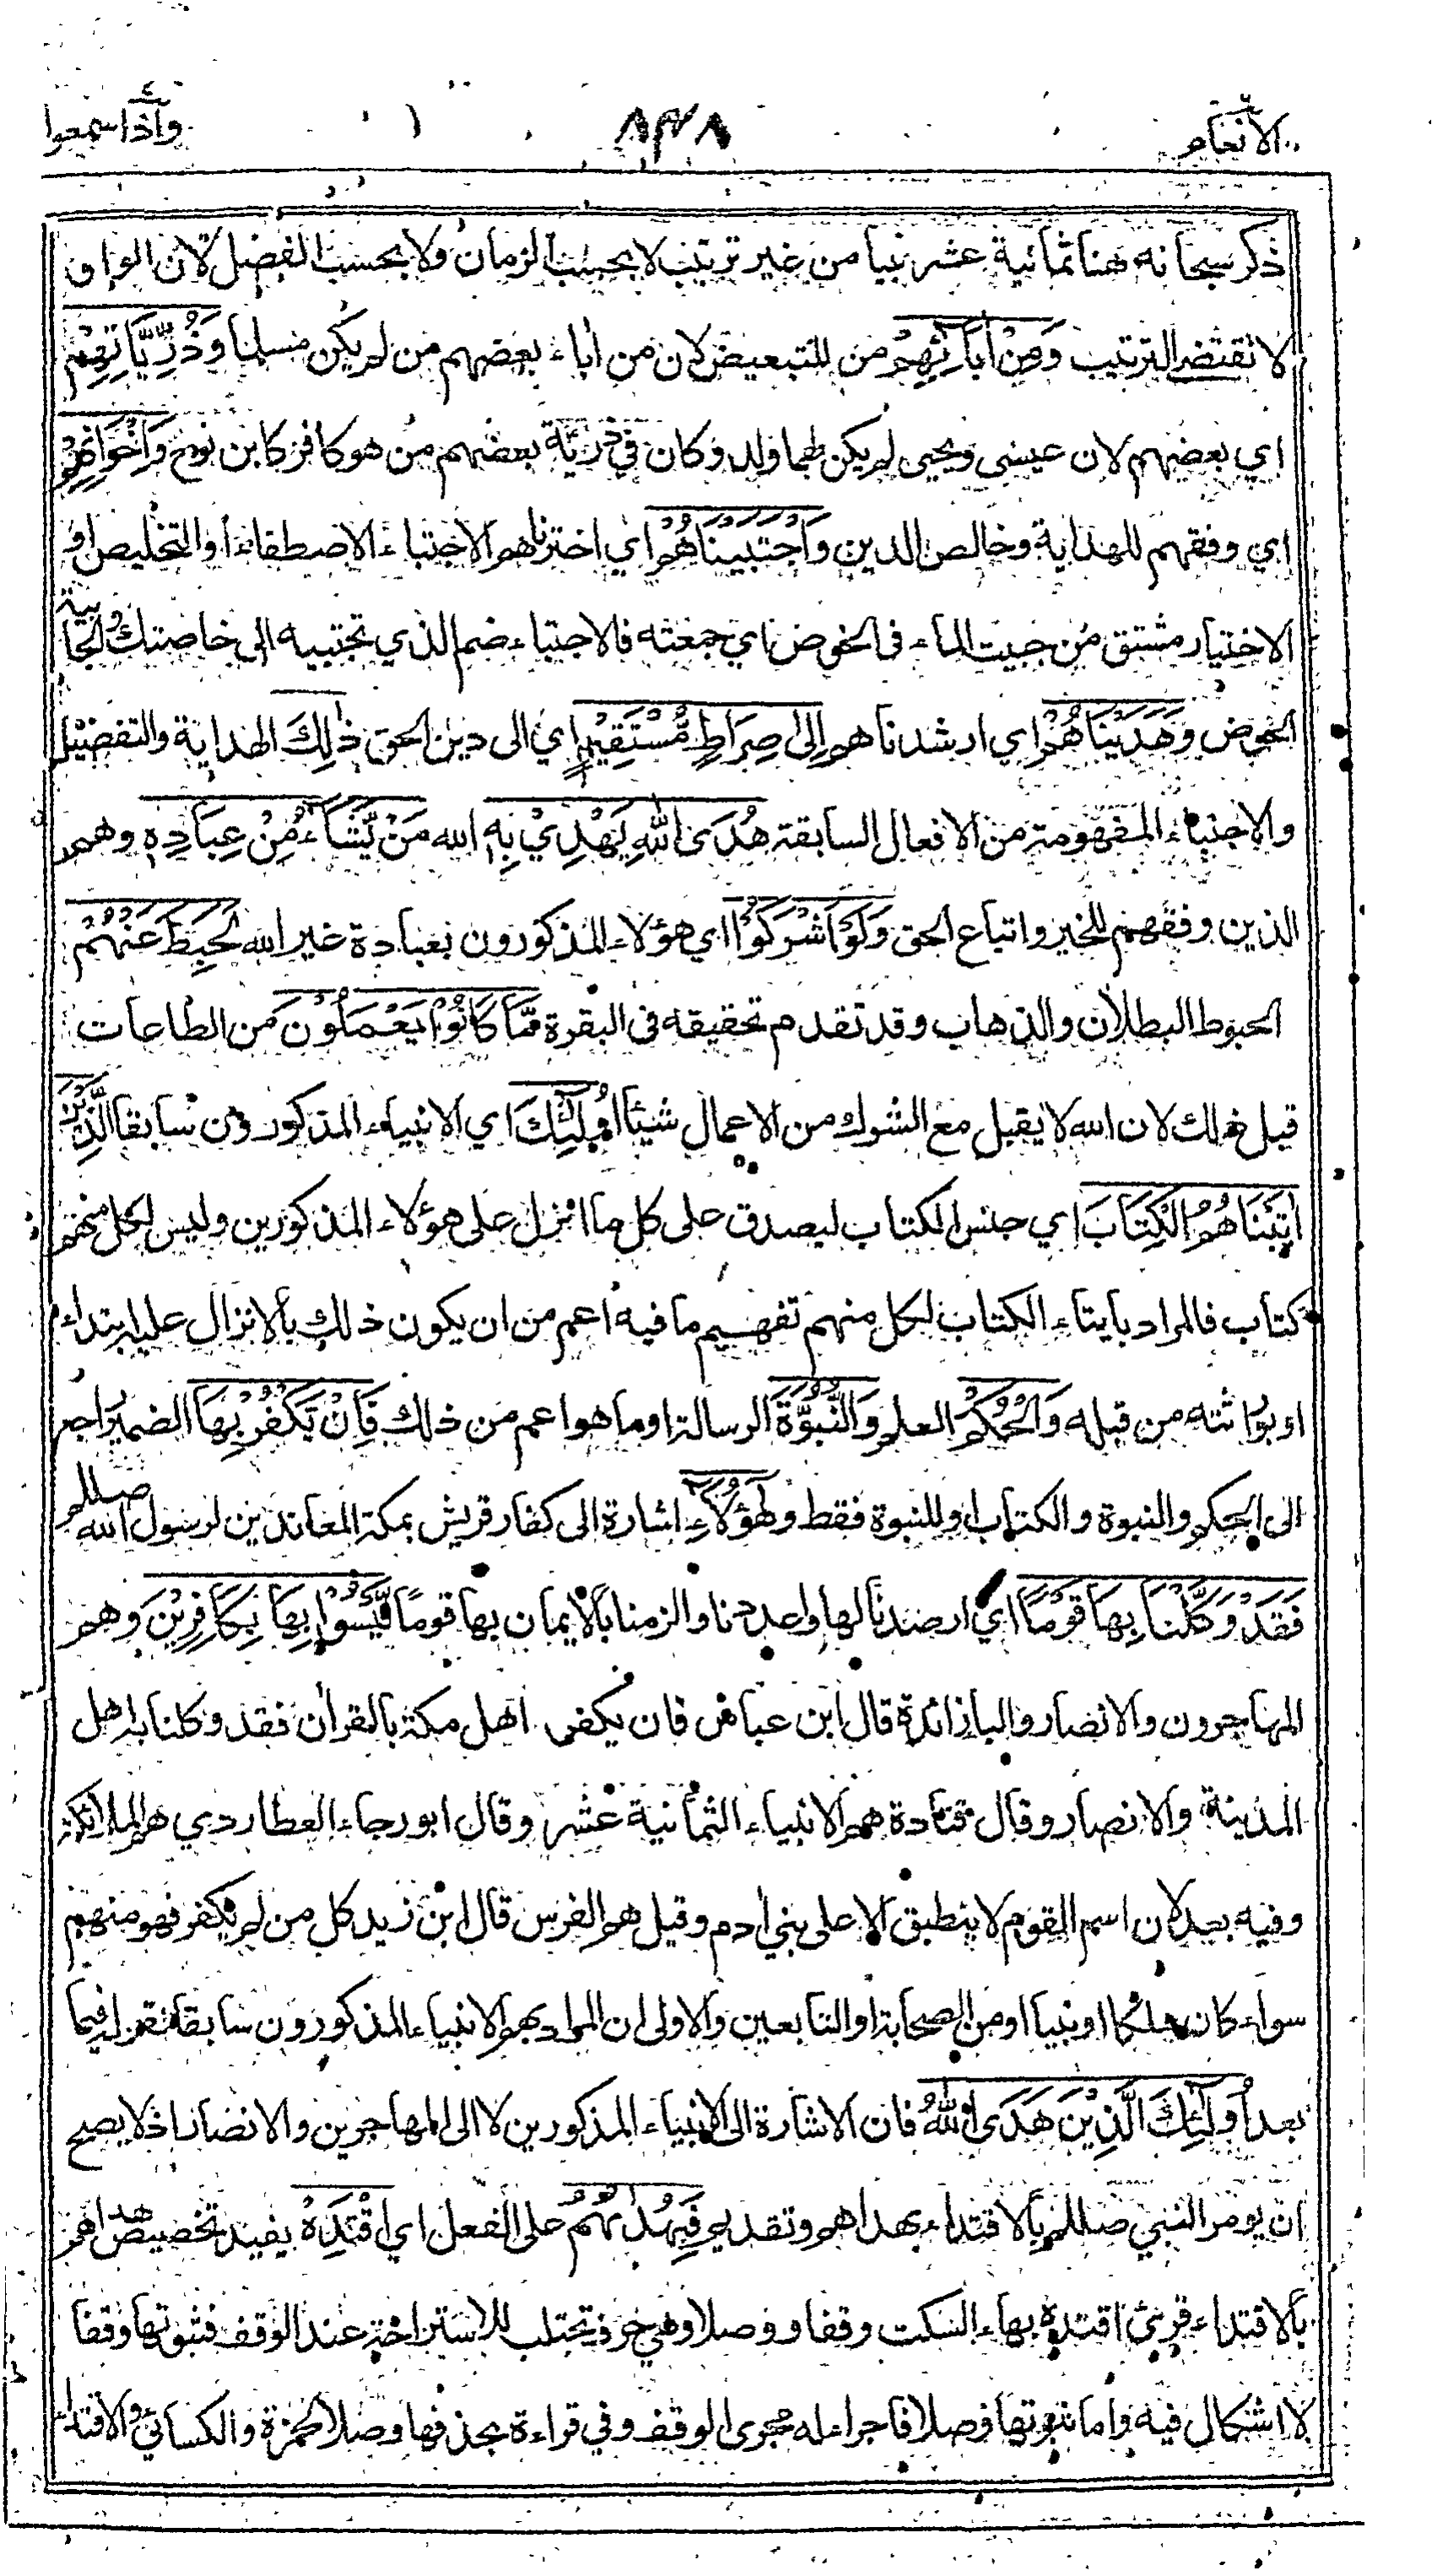 الأنعام ٨٣٨ وإذا سمعوا
ذكر سبحانه ههنا ثمانية عشر نبيا من غير ترتيب لا بحسب الزمان ولا بحسب الفضل لان الواو
لا تقتضي الترتيب وَمِنْ اٰبَائِهِمْ من للتبعيض لان من اٰباء بعضهم من لم يكن مسلما وَذُرِّيَّاتِهِمْ
اي بعضهم لان عيسى ويحيى لم يكن لهما ولد وكان في ذرية بعضهم من هو كافر كابن نوح وَاِخْوَانِهِمْ
اي وفقهم للهداية وخالص الدين وَاجْتَبَيْنَاهُمْ اي اخترناهم الاجتباء الاصطفاء او التخليص او
الاختيار مشتق من جبيت الماء في الحوض اي جمعته فالاجتباء ضم الذي تجتبيه الى خاصتك والجابية
الحوض وَهَدَيْنَاهُمْ اي ارشدناهم اِلٰى صِرَاطٍ مُّسْتَقِيْمٍ اي الى دين الحق ذٰلِكَ الهداية والتفضيل
والاجتباء المفهومة من الافعال السابقة هُدَى اللّٰهِ يَهْدِيْ بِهٖ الله مَنْ يَّشَاءُ مِنْ عِبَادِهٖ وهم
الذين وفقهم للخير واتباع الحق وَلَوْ اَشْرَكُوْا اي هؤلاء المذكورون بعبادة غير الله لَحَبِطَ عَنْهُمْ
الحبوط البطلان والذهاب وقد تقدم تحقيقه في البقرة مَّا كَانُوْا يَعْمَلُوْنَ من الطاعات
قبل ذلك لان الله لا يقبل مع الشرك من الاعمال شيئا اُولٰئِكَ اي الانبياء المذكورون سابقا الَّذِيْنَ
اٰتَيْنَاهُمُ الْكِتَابَ اي جنس الكتاب ليصدق على كل ما انزل على هؤلاء المذكورين وليس لكل منهم
كتاب فالمراد بايتاء الكتاب لكل منهم تفهيم ما فيه اعم من ان يكون ذلك بالانزال عليه ابتداء
او بوراثته من قبله وَالْحُكْمَ العلم وَالنُّبُوَّةَ الرسالة او ما هو اعم من ذلك فَاِنْ يَّكْفُرْ بِهَا الضمير راجع
الى الحكم والنبوة والكتاب او للنبوة فقط هٰؤُلَاءِ اشارة الى كفار قريش بمكة المعاندين لرسول الله صللم
فَقَدْ وَكَّلْنَا بِهَا قَوْمًا اي ارصدنا لها واعددنا والزمنا بالايمان بها قوما لَّيْسُوْا بِهَا بِكَافِرِيْنَ وهم
المهاجرون والانصار والبا زائدة قال ابن عباس فان يكفر اهل مكة بالقرآن فقد وكلنا به اهل
المدينة والانصار وقال قتادة هم الانبياء الثمانية عشر وقال ابو رجاء العطاردي هم الملائكة
وفيه بعد لان اسم القوم لا ينطبق الا على بني اٰدم وقيل هم الفرس قال ابن زيد كل من لم يكفر فهو منهم
سواء كان ملكا او نبيا او من الصحابة او التابعين والاولى ان المراد بهم الانبياء المذكورون سابقا لقوله فيما
بعد اُولٰئِكَ الَّذِيْنَ هَدَى اللّٰهُ فان الاشارة الى الانبياء المذكورين لا الى المهاجرين والانصار اذ لا يصح
ان يؤمر النبي صللم بالاقتداء بهداهم وتقديم فَبِهُدٰىهُمُ على الفعل اي اقْتَدِهْ يفيد تخصيص هداهم
بالاقتداء قرئ اقتده بهاء السكت وقفا ووصلا وهي حرف تجتلب للاستراحة عند الوقف فثبوتها وقفا
لا اشكال فيه واما ثبوتها وصلا فاجراء له مجرى الوقف وفي قراءة بحذفها وصلا لحمزة والكسائي والاقتداء